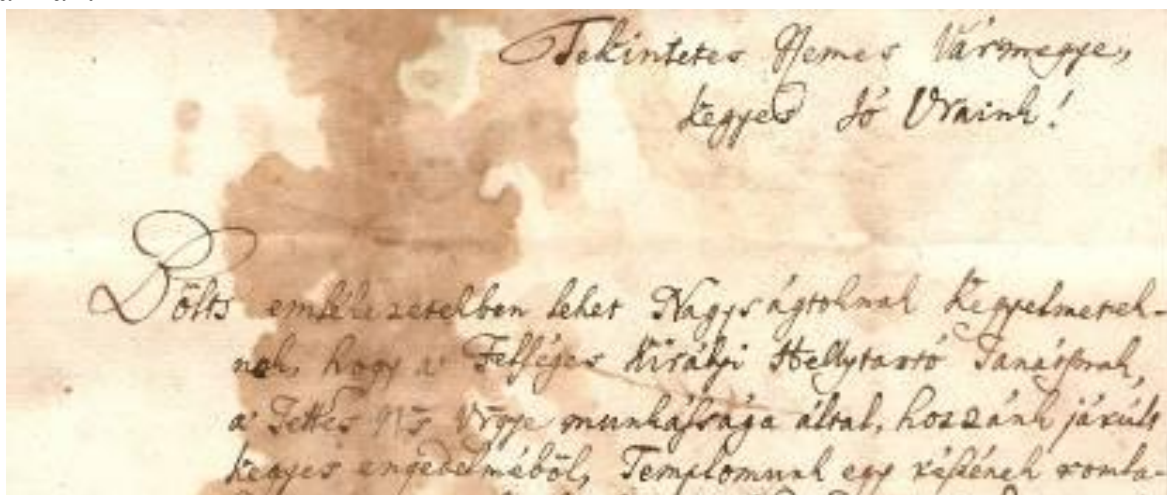 Tekintetes Nemes Vármegye,
kegyes Jó Uraink!
Bölts emlékezetekben lehet Nagyságtoknak Kegyelmetek-
nek, hogy a' Felséges Királyi Hellytartó Tanátsnak,
a' Tettes Ns Vgye munkássága által, hozzánk járúlt
kegyes engedelméből, Templomunk egy részének romla-